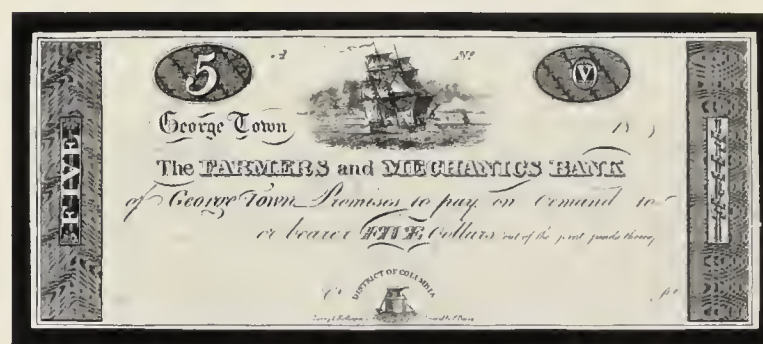 5 A No V
George Town 18
The FARMERS and MECHANICS BANK
of George Town Promises to pay on Demand to
or bearer FIVE Dollars out of the joint funds thereof
DISTRICT OF COLUMBIA
FIVE